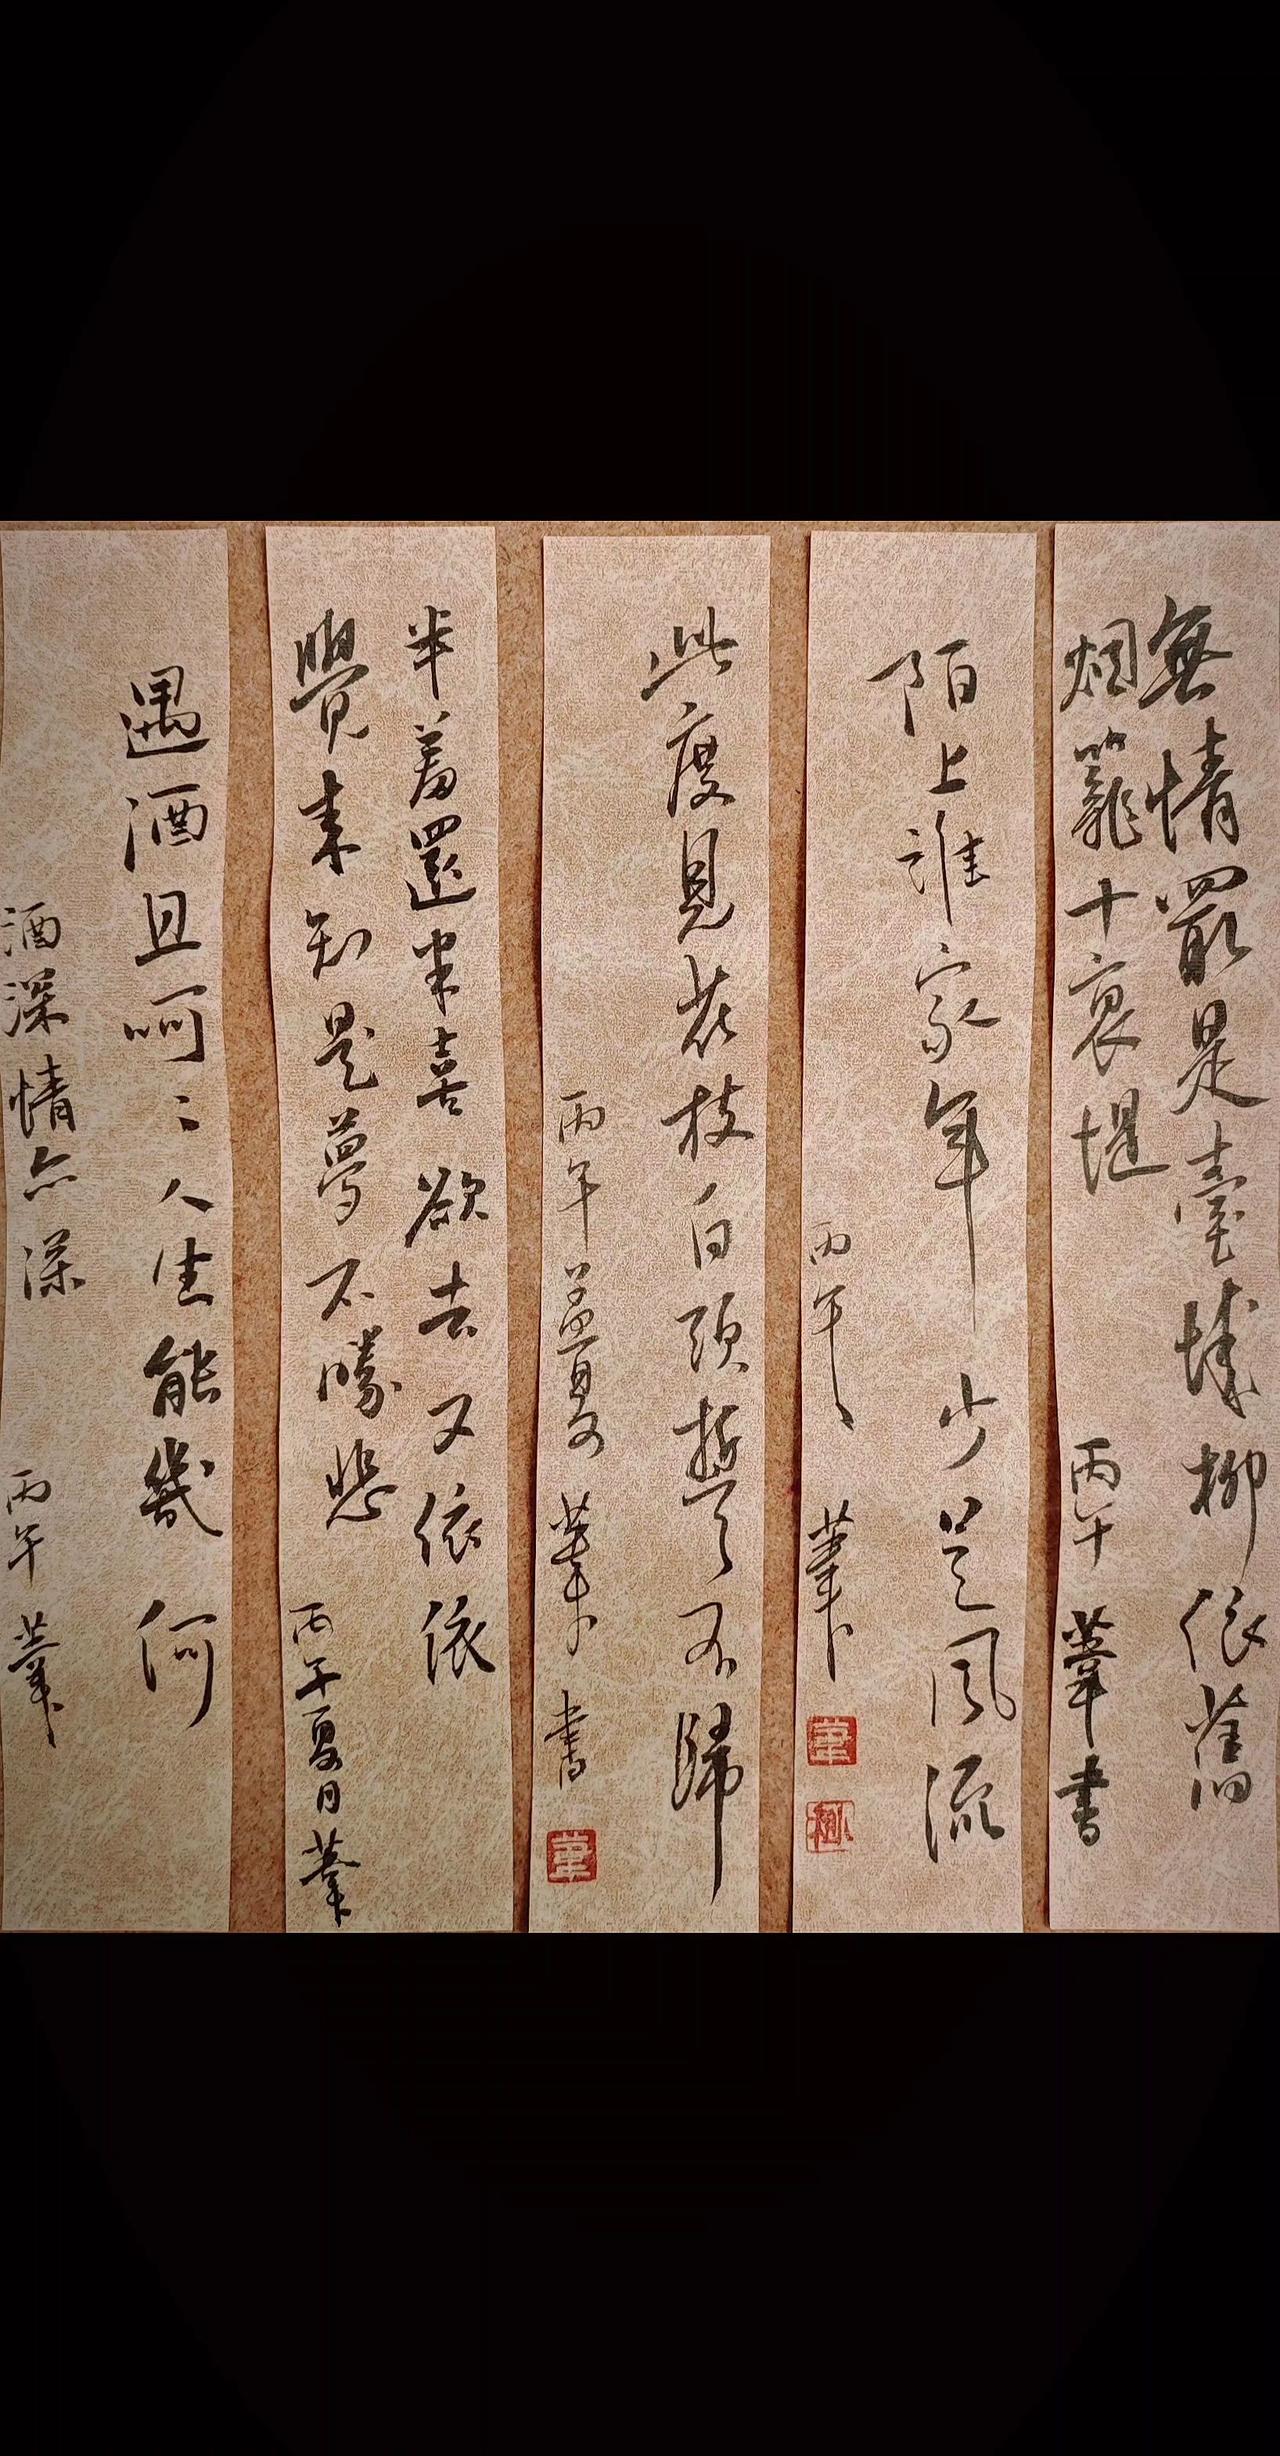 無情最是臺城柳依舊
烟籠十里堤
丙午 葦書
陌上誰家年少足風流
丙午
葦
此度見花枝白頭誓不歸
丙午孟夏 葦書
半羞還半喜欲去又依依
覺來知是夢不勝悲
丙午夏月 葦
遇酒且呵〻人生能幾何
酒深情亦深
丙午 葦